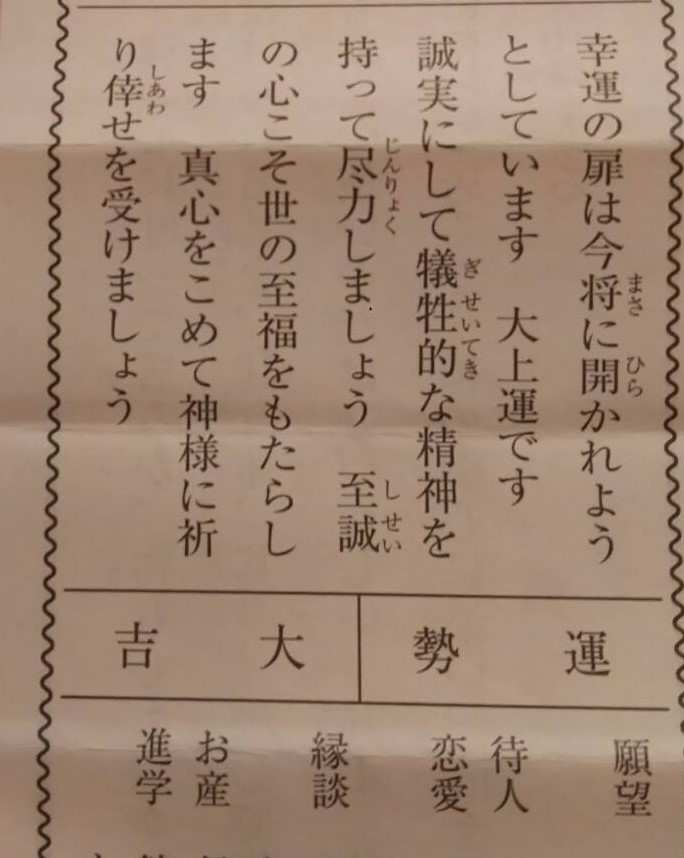 幸運の扉は今将に開かれよう
としています 大上運です
誠実にして犠牲的な精神を
持って尽力しましょう 至誠
の心こそ世の至福をもたらし
ます 真心をこめて神様に祈
り倖せを受けましょう
まさ ひら
ぎ せいてき
じんりょく
し せい
しあわ
運勢
大吉
願望
待人
恋愛
縁談
お産
進学